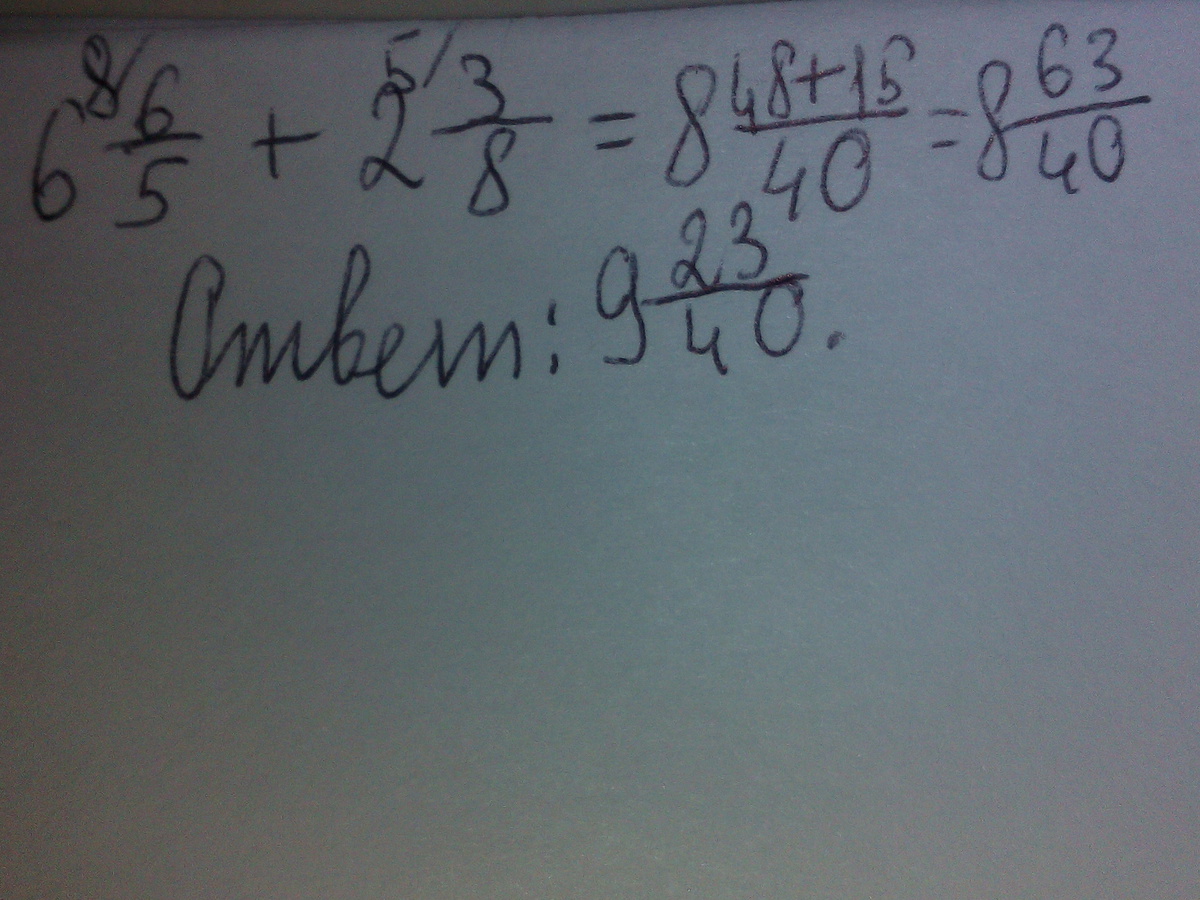 6 8/ 6/5 + 2 5/ 3/8 = 8 48+15/40 = 8 63/40
Ответ: 9 23/40.